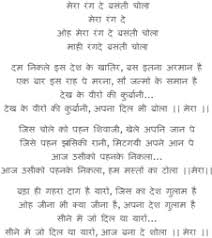 मेरा रंग दे बसंती चोला
मेरा रंग दे
ओह मेरा रंग दे बसंती चोला
माही रंगदे बसंती चोला
दम निकले इस देश के खातिर, बस इतना अरमान है
एक बार इस राह पे मरना, सौ जन्मों के समान है
देख के वीरों की कुर्बानी...
देख के वीरों की कुर्बानी, अपना दिल भी बोला ।। मेरा ।।
जिस चोले को पहन शिवाजी, खेले अपनि जान पे
जिसे पहन झाँसिकी रानी, मिटगयी अपने आन पे
आज उसीको पहनके निकला...
आज उसीको पहनके निकला, हम मस्तों का टोला ।।मेरा।।
बड़ा ही गहरा दाग़ है यारों, जिस का देश ग़ुलाम है
ओह जीना भी क्या जीना है, अपना देश गुलाम है
सीने में जो दिल था यारों...
सीने में जो दिल था यारों, आज बना दे शोला ।। मेरा ।।